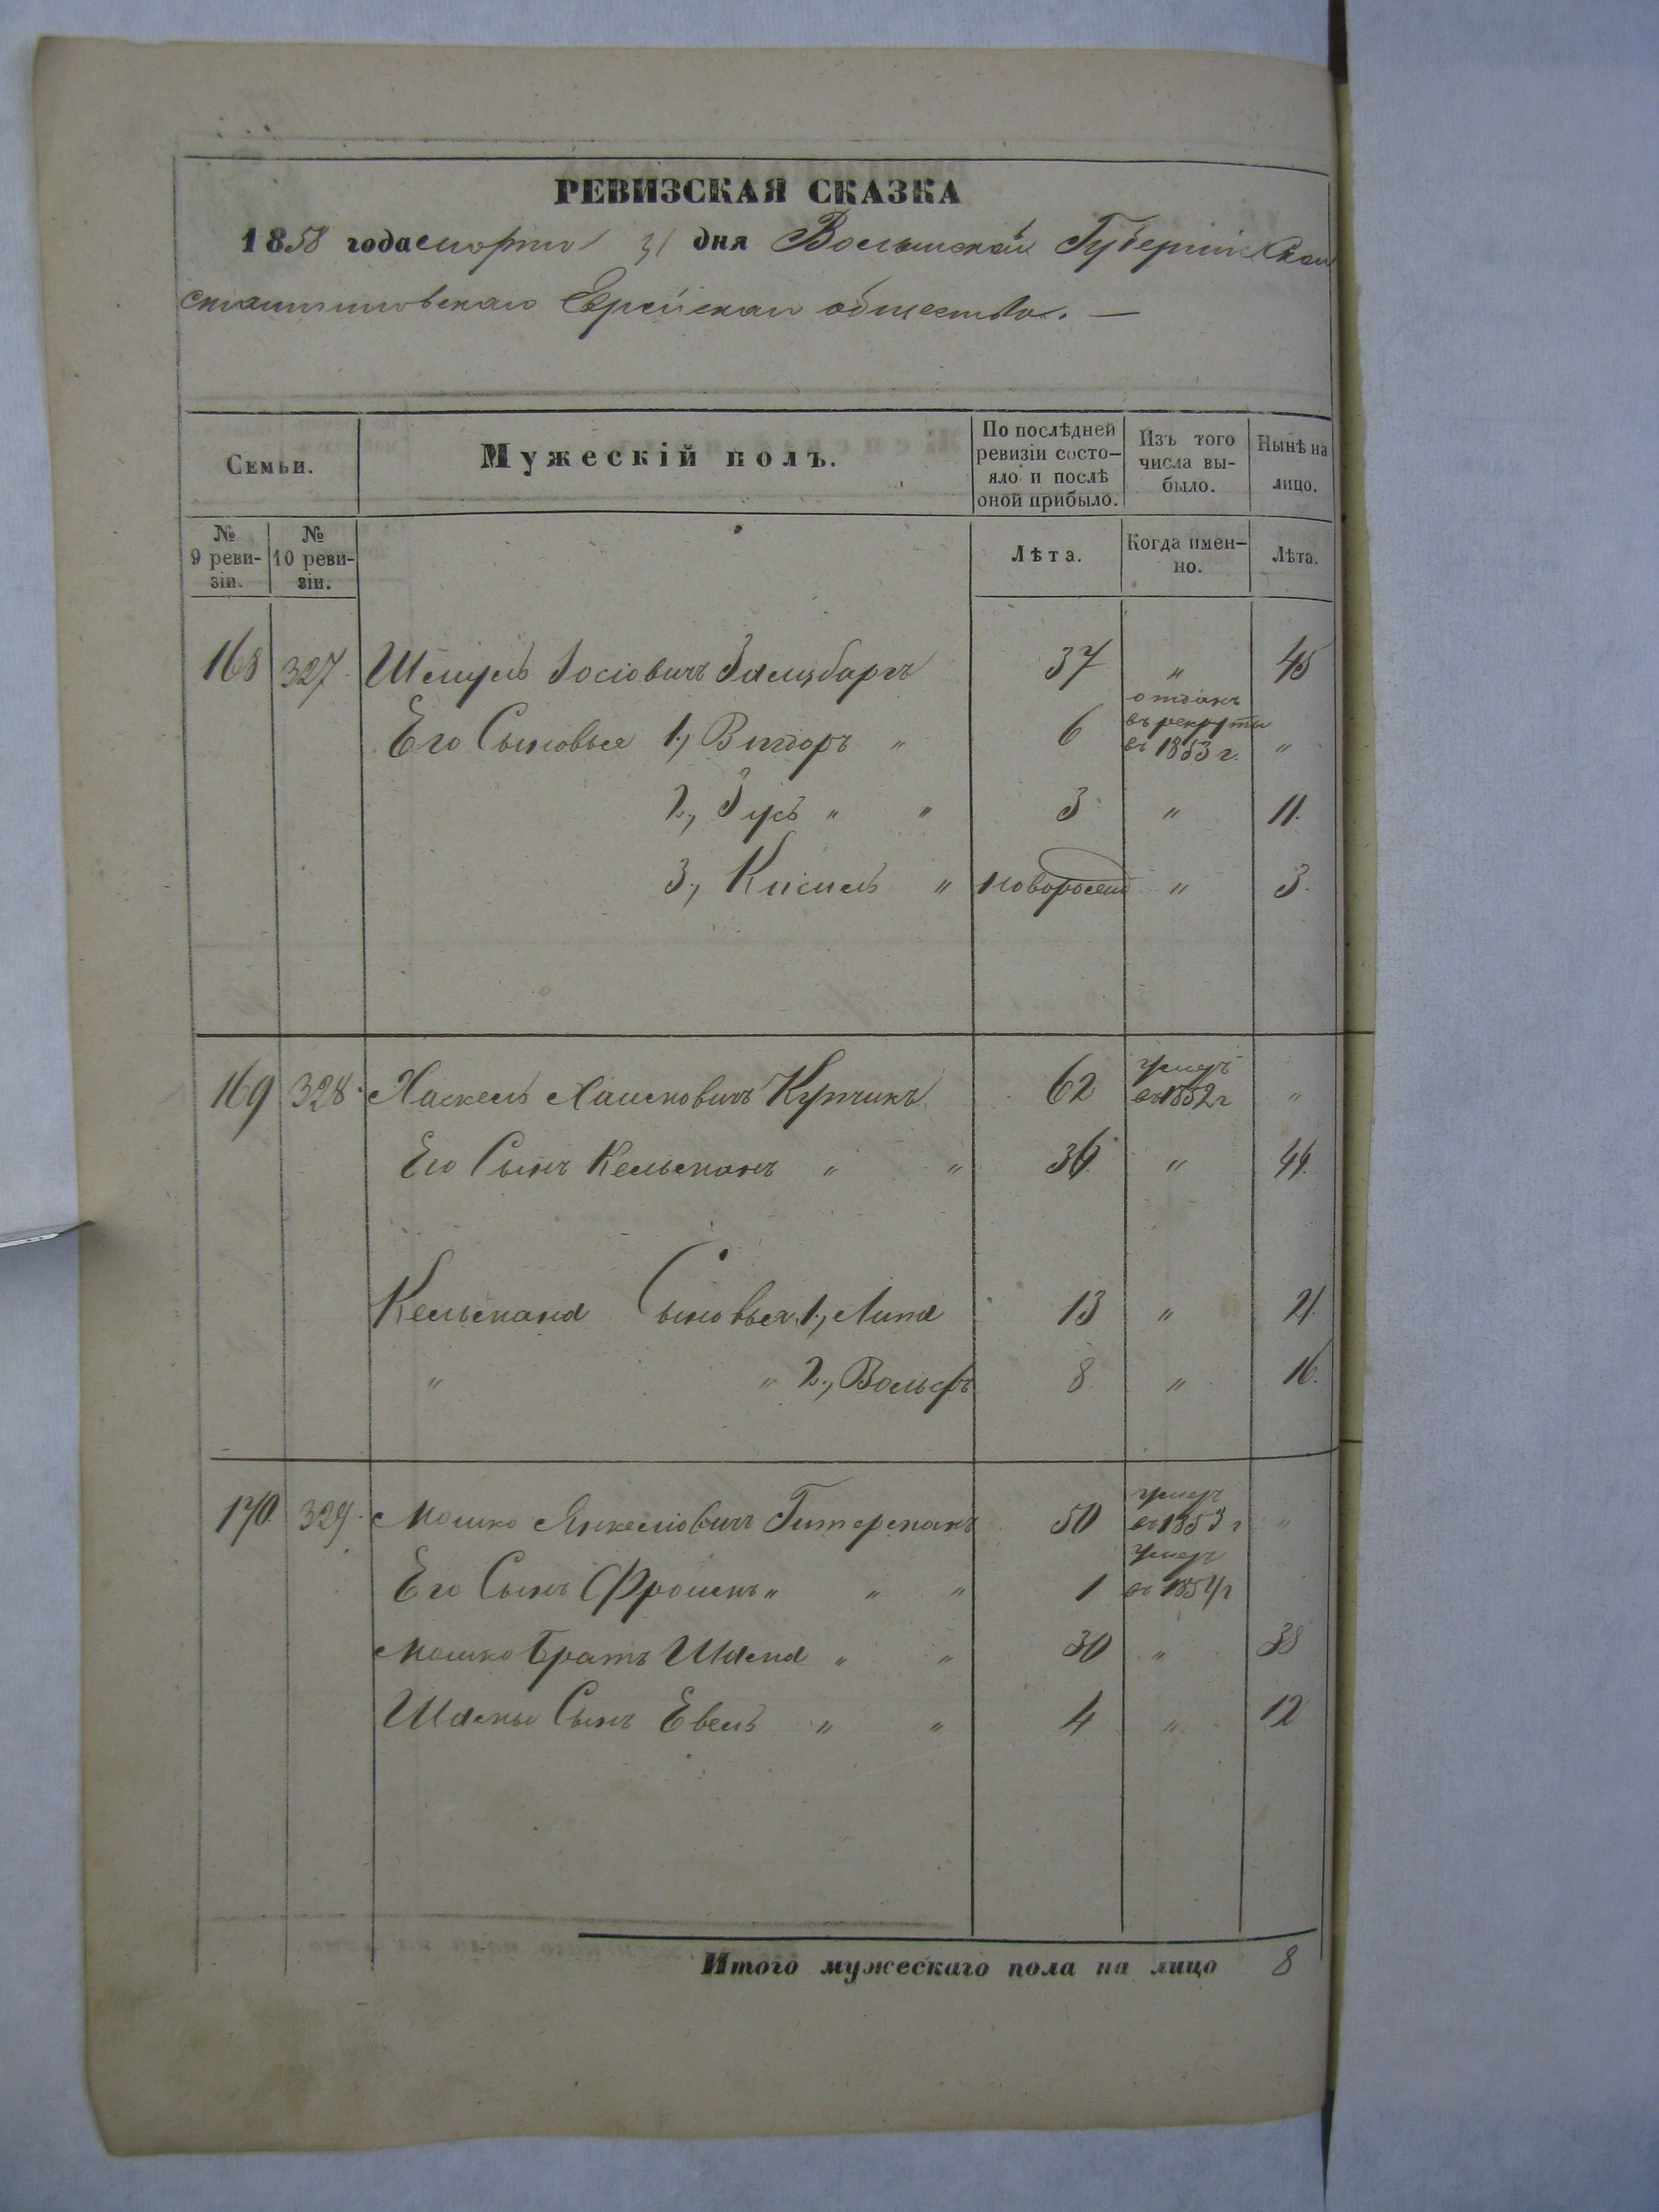 РЕВИЗСКАЯ СКАЗКА
1858 года марта 31 дня Волынской Губерніи Кон
стантиновскаго Еврейскаго общества. —
Семьи.
Мужескій полъ.
По послѣдней ревизіи состо-
яло и послѣ оной прибыло.
Изъ того числа вы-
было.
Нынѣ на лицо.
№ 9 реви-
зіи.
№ 10 реви-
зіи.
Лѣта.
Когда имен-
но.
Лѣта.
168 327 Шмуль Іосіовичъ Залцбаргъ 37 " 45
Его Сыновья 1, Видоръ " 6 отданъ въ рекруты въ 1853 г. "
2, Зусь " " 3 " 11.
3, Кисиль " новорожд " 3.
169 328. Хаскель Хаимовичъ Купчикъ 62 умеръ въ 1852 г "
Его Сынъ Кельманъ " " 36 " 44.
Кельмана Сыновья 1, Липа 13 " 21.
" " 2, Вольфъ 8 " 16.
170. 329. Мошко Янкелiовичъ Гитерманъ 50 умеръ въ 1853 г "
Его Сынъ Фроимъ " " " 1 умеръ въ 1854 г
Мошко Братъ Шмема " " 30 " 38
Сынъ Евель " " 4 " 12
Итого мужескаго пола на лицо 8